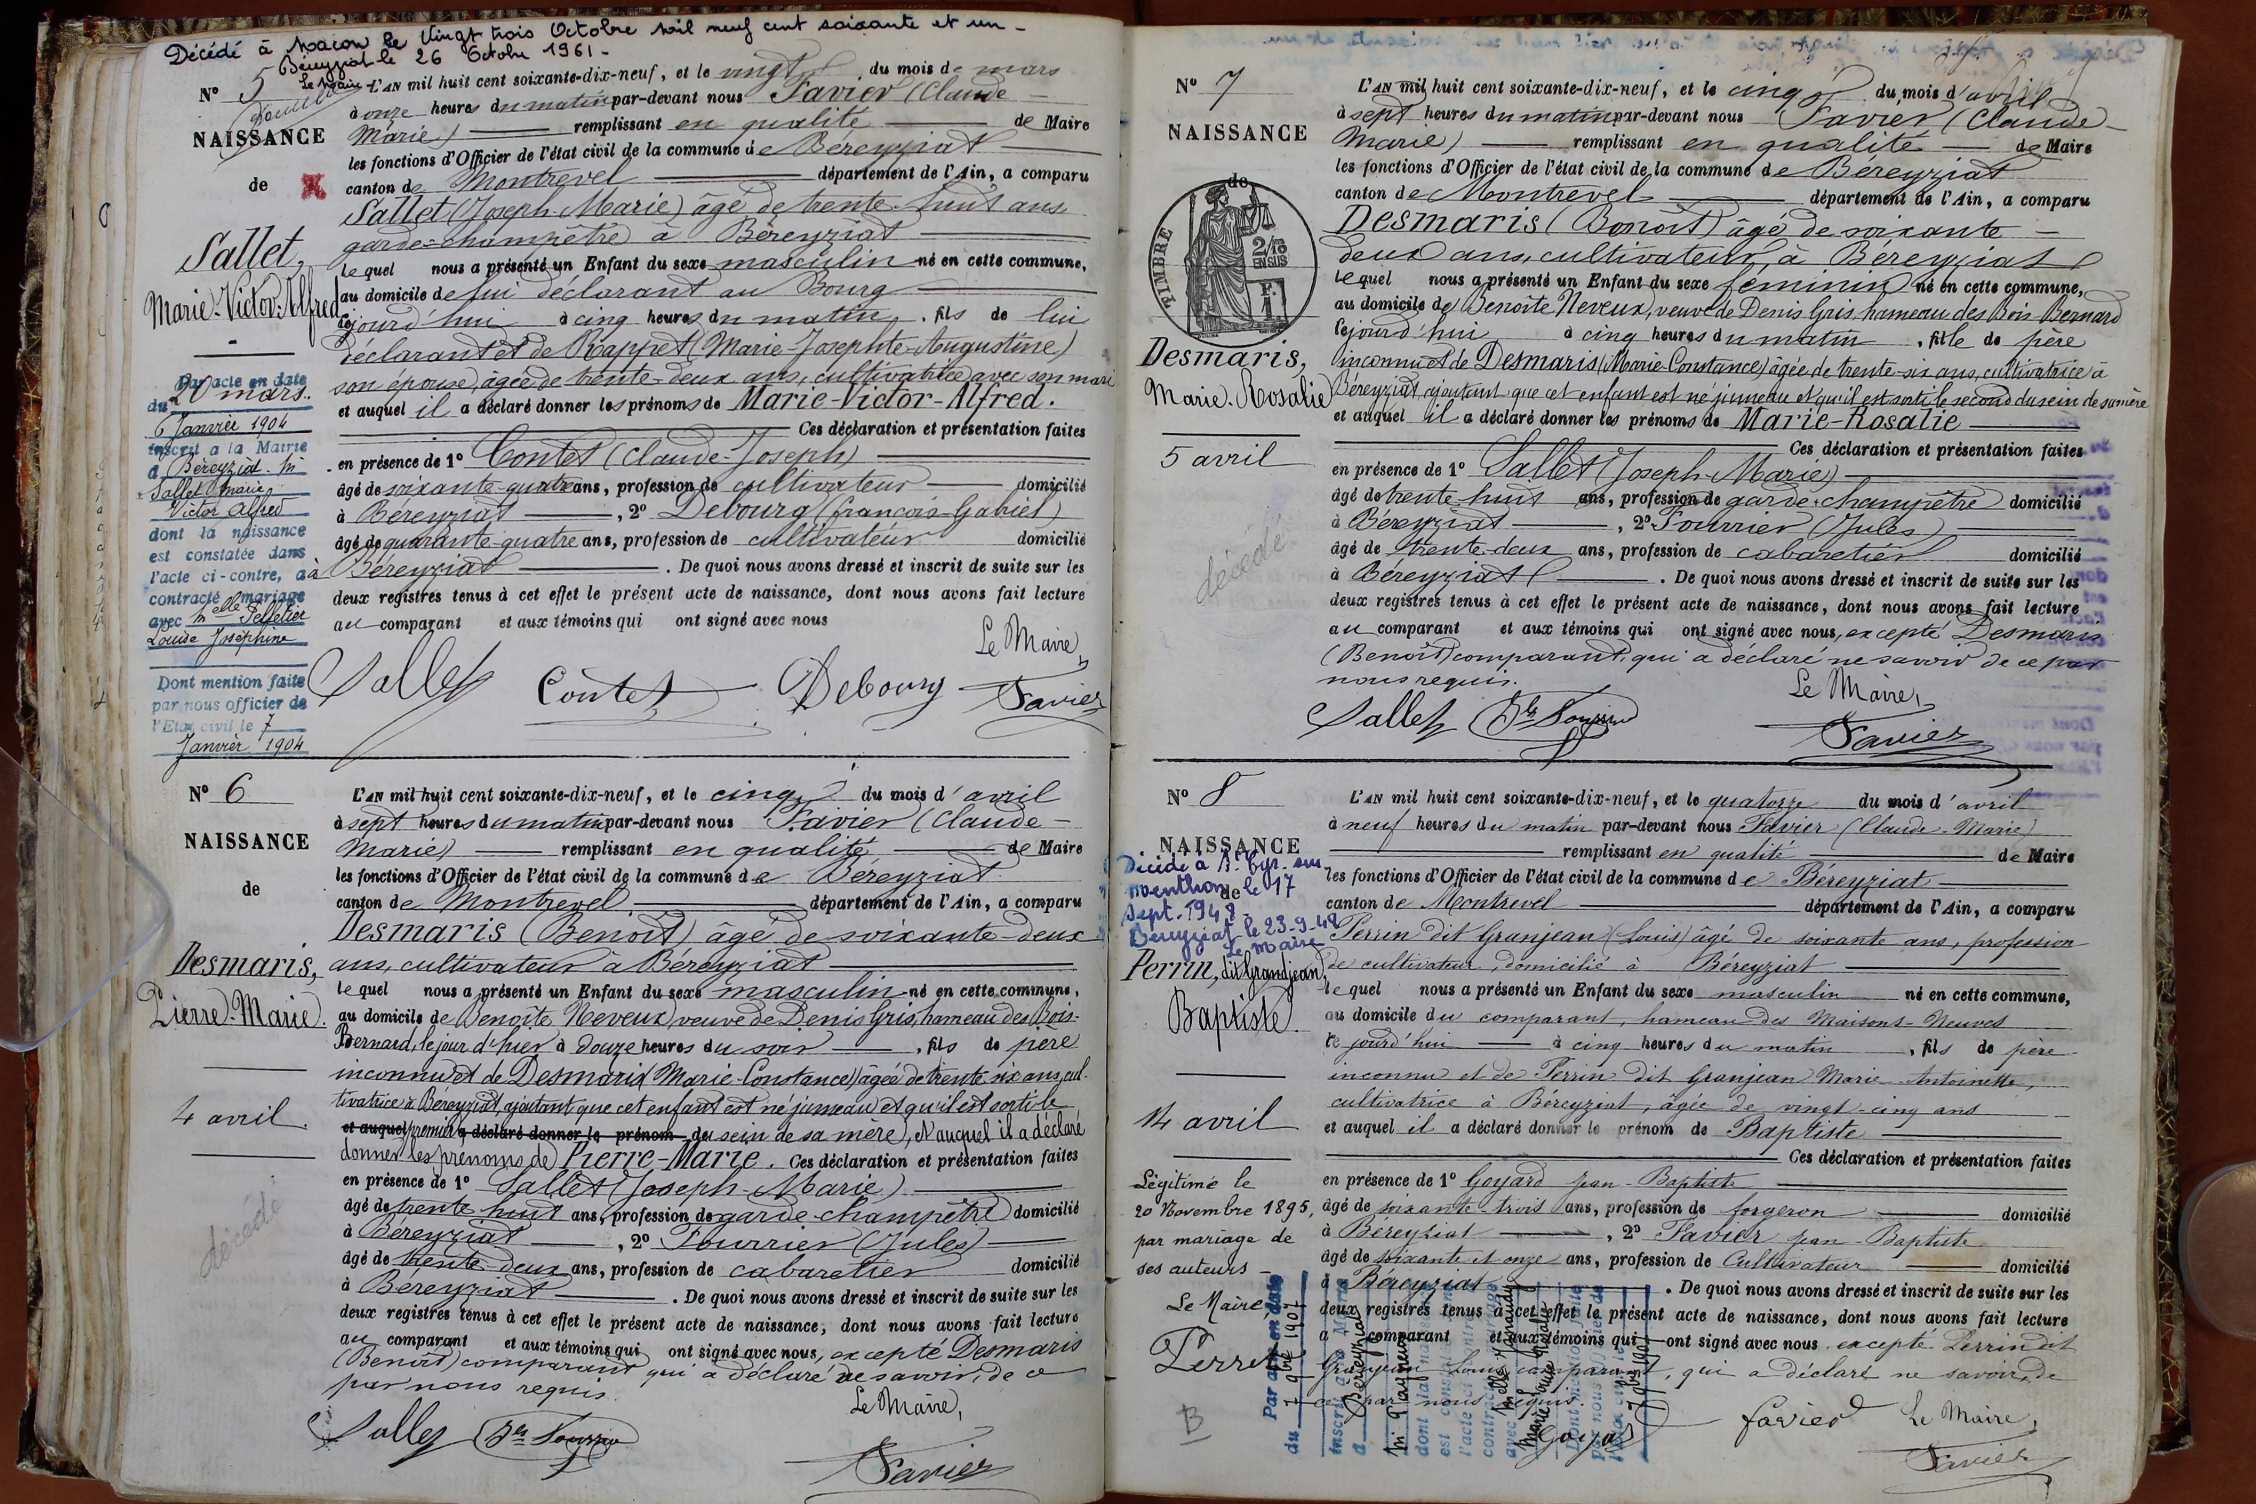 Décédé à Macon le Vingt trois Octobre mil neuf cent soixante et un -
Béreyziat le 26 Octobre 1961 -
Le Maire
N° 5
NAISSANCE
de
Sallet,
Marie-Victor-Alfred
20 mars.
L'AN mil huit cent soixante-dix-neuf, et le vingt du mois de mars
à onze heures du matin par-devant nous Favier (Claude
Marie) remplissant en qualité de Maire
les fonctions d'Officier de l'état civil de la commune de Béreyziat
canton de Montrevel département de l'Ain, a comparu
Sallet (Joseph-Marie) âgé de trente-huit ans
garde-champêtre à Béreyziat
lequel nous a présenté un Enfant du sexe masculin né en cette commune,
au domicile de lui déclarant au Bourg
cejourd'hui à cinq heures du matin, fils de lui
déclarant et de Rappet (Marie-Josephte-Augustine)
son épouse, âgée de trente-deux ans, cultivatrice avec son mari
et auquel il a déclaré donner les prénoms de Marie-Victor-Alfred.
Ces déclaration et présentation faites
en présence de 1° Contet (Claude-Joseph)
âgé de soixante-quatre ans, profession de cultivateur domicilié
à Béreyziat, 2° Debourg (françois-Gabriel)
âgé de quarante-quatre ans, profession de cultivateur domicilié
à Béreyziat. De quoi nous avons dressé et inscrit de suite sur les
deux registres tenus à cet effet le présent acte de naissance, dont nous avons fait lecture
au comparant et aux témoins qui ont signé avec nous
Le Maire,
Sallet Contet Debourg Favier
Par acte en date
du
6 Janvier 1904
inscrit à la Mairie
d Béreyziat. M
Sallet Marie
Victor Alfred
dont la naissance
est constatée dans
l'acte ci-contre, a
contracté mariage
avec Melle Pelletier
Louise Joséphine
Dont mention faite
par nous officier de
l'Etat civil le 7
Janvier 1904
N° 6
NAISSANCE
de
Desmaris,
Pierre-Marie.
4 avril.
décédé
L'AN mil huit cent soixante-dix-neuf, et le cinq du mois d'avril
à sept heures du matin par-devant nous Favier (Claude-
Marie) remplissant en qualité de Maire
les fonctions d'Officier de l'état civil de la commune de Béreyziat
canton de Montrevel département de l'Ain, a comparu
Desmaris (Benoît) âgé de soixante-deux
ans, cultivateur à Béreyziat
lequel nous a présenté un Enfant du sexe masculin né en cette commune,
au domicile de Benoîte Neveux, veuve de Denis Gris, hameau des Bois-
Bernard, le jour d'hier à douze heures du soir, fils de père
inconnu et de Desmaris (Marie-Constance) âgée de trente six ans, cul-
tivatrice à Béreyziat, ajoutant que cet enfant est né jumeau et qu'il est sorti le
et auquel premier a déclaré donner le prénom du sein de sa mère, et auquel il a déclaré
donner les prénoms de Pierre-Marie. Ces déclaration et présentation faites
en présence de 1° Sallet (Joseph-Marie)
âgé de trente huit ans, profession de garde-champêtre domicilié
à Béreyziat, 2° Fourrier (Jules)
âgé de trente-deux ans, profession de cabaretier domicilié
à Béreyziat. De quoi nous avons dressé et inscrit de suite sur les
deux registres tenus à cet effet le présent acte de naissance, dont nous avons fait lecture
au comparant et aux témoins qui ont signé avec nous, excepté Desmaris
(Benoît) comparant qui a déclaré ne savoir, de ce
par nous requis.
Le Maire,
Sallet Jes Fourrier
Favier
N° 7
NAISSANCE
de
TIMBRE
2/10
EN SUS
F.
1
Desmaris,
Marie-Rosalie
5 avril
décédé
L'AN mil huit cent soixante-dix-neuf, et le cinq du mois d'avril
à sept heures du matin par-devant nous Favier (Claude-
Marie) remplissant en qualité de Maire
les fonctions d'Officier de l'état civil de la commune de Béreyziat
canton de Montrevel département de l'Ain, a comparu
Desmaris (Benoît) âgé de soixante-
deux ans, cultivateur, à Béreyziat
lequel nous a présenté un Enfant du sexe féminin né en cette commune,
au domicile de Benoîte Neveux, veuve de Denis Gris, hameau des Bois-Bernard
cejourd'hui à cinq heures du matin, fille de père
inconnu et de Desmaris (Marie-Constance) âgée de trente-six ans, cultivatrice à
Béreyziat, ajoutant que cet enfant est né jumeau et qu'il est sorti le second du sein de sa mère
et auquel il a déclaré donner les prénoms de Marie-Rosalie
Ces déclaration et présentation faites
en présence de 1° Sallet (Joseph-Marie)
âgé de trente-huit ans, profession de garde-champêtre domicilié
à Béreyziat, 2° Fourrier (Jules)
âgé de trente-deux ans, profession de cabaretier domicilié
à Béreyziat. De quoi nous avons dressé et inscrit de suite sur les
deux registres tenus à cet effet le présent acte de naissance, dont nous avons fait lecture
au comparant et aux témoins qui ont signé avec nous, excepté Desmaris
(Benoît) comparant, qui a déclaré ne savoir de ce par
nous requis.
Le Maire,
Sallet Jes Fourrier
Favier
N° 8
NAISSANCE
de
Décédé à St. Cyr-sur
Menthon le 17
Sept. 1948
Béreyziat le 23-9-48
Le Maire
Perrin, dit Grandjean,
Baptiste.
14 avril
Légitimé le
20 Novembre 1895,
par mariage de
ses auteurs -
Le Maire
B
L'AN mil huit cent soixante-dix-neuf, et le quatorze du mois d'avril
à neuf heures du matin par-devant nous Favier (Claude-Marie)
remplissant en qualité de Maire
les fonctions d'Officier de l'état civil de la commune de Béreyziat
canton de Montrevel département de l'Ain, a comparu
Perrin dit Granjean (Louis) âgé de soixante ans, profession
de cultivateur, domicilié à Béreyziat
lequel nous a présenté un Enfant du sexe masculin né en cette commune,
au domicile du comparant, hameau des Maisons-Neuves
ce jourd'hui à cinq heures du matin, fils de père
inconnu et de Perrin dit Granjean Marie-Antoinette,
cultivatrice à Béreyziat, âgée de vingt-cinq ans
et auquel il a déclaré donner le prénom de Baptiste
Ces déclaration et présentation faites
en présence de 1° Goyard Jean-Baptiste
âgé de soixante trois ans, profession de forgeron domicilié
à Béreyziat, 2° Favier Jean-Baptiste
âgé de soixante et onze ans, profession de Cultivateur domicilié
à Béreyziat. De quoi nous avons dressé et inscrit de suite sur les
deux registres tenus à cet effet le présent acte de naissance, dont nous avons fait lecture
a comparant et aux témoins qui ont signé avec nous excepté Perrin dit
Granjean Louis comparant, qui a déclaré ne savoir, de
ce par nous requis.
Goyard favier Le Maire,
Favier
Par acte en date
du 9bre 1907
inscrit à la Mairie
d Béreyziat